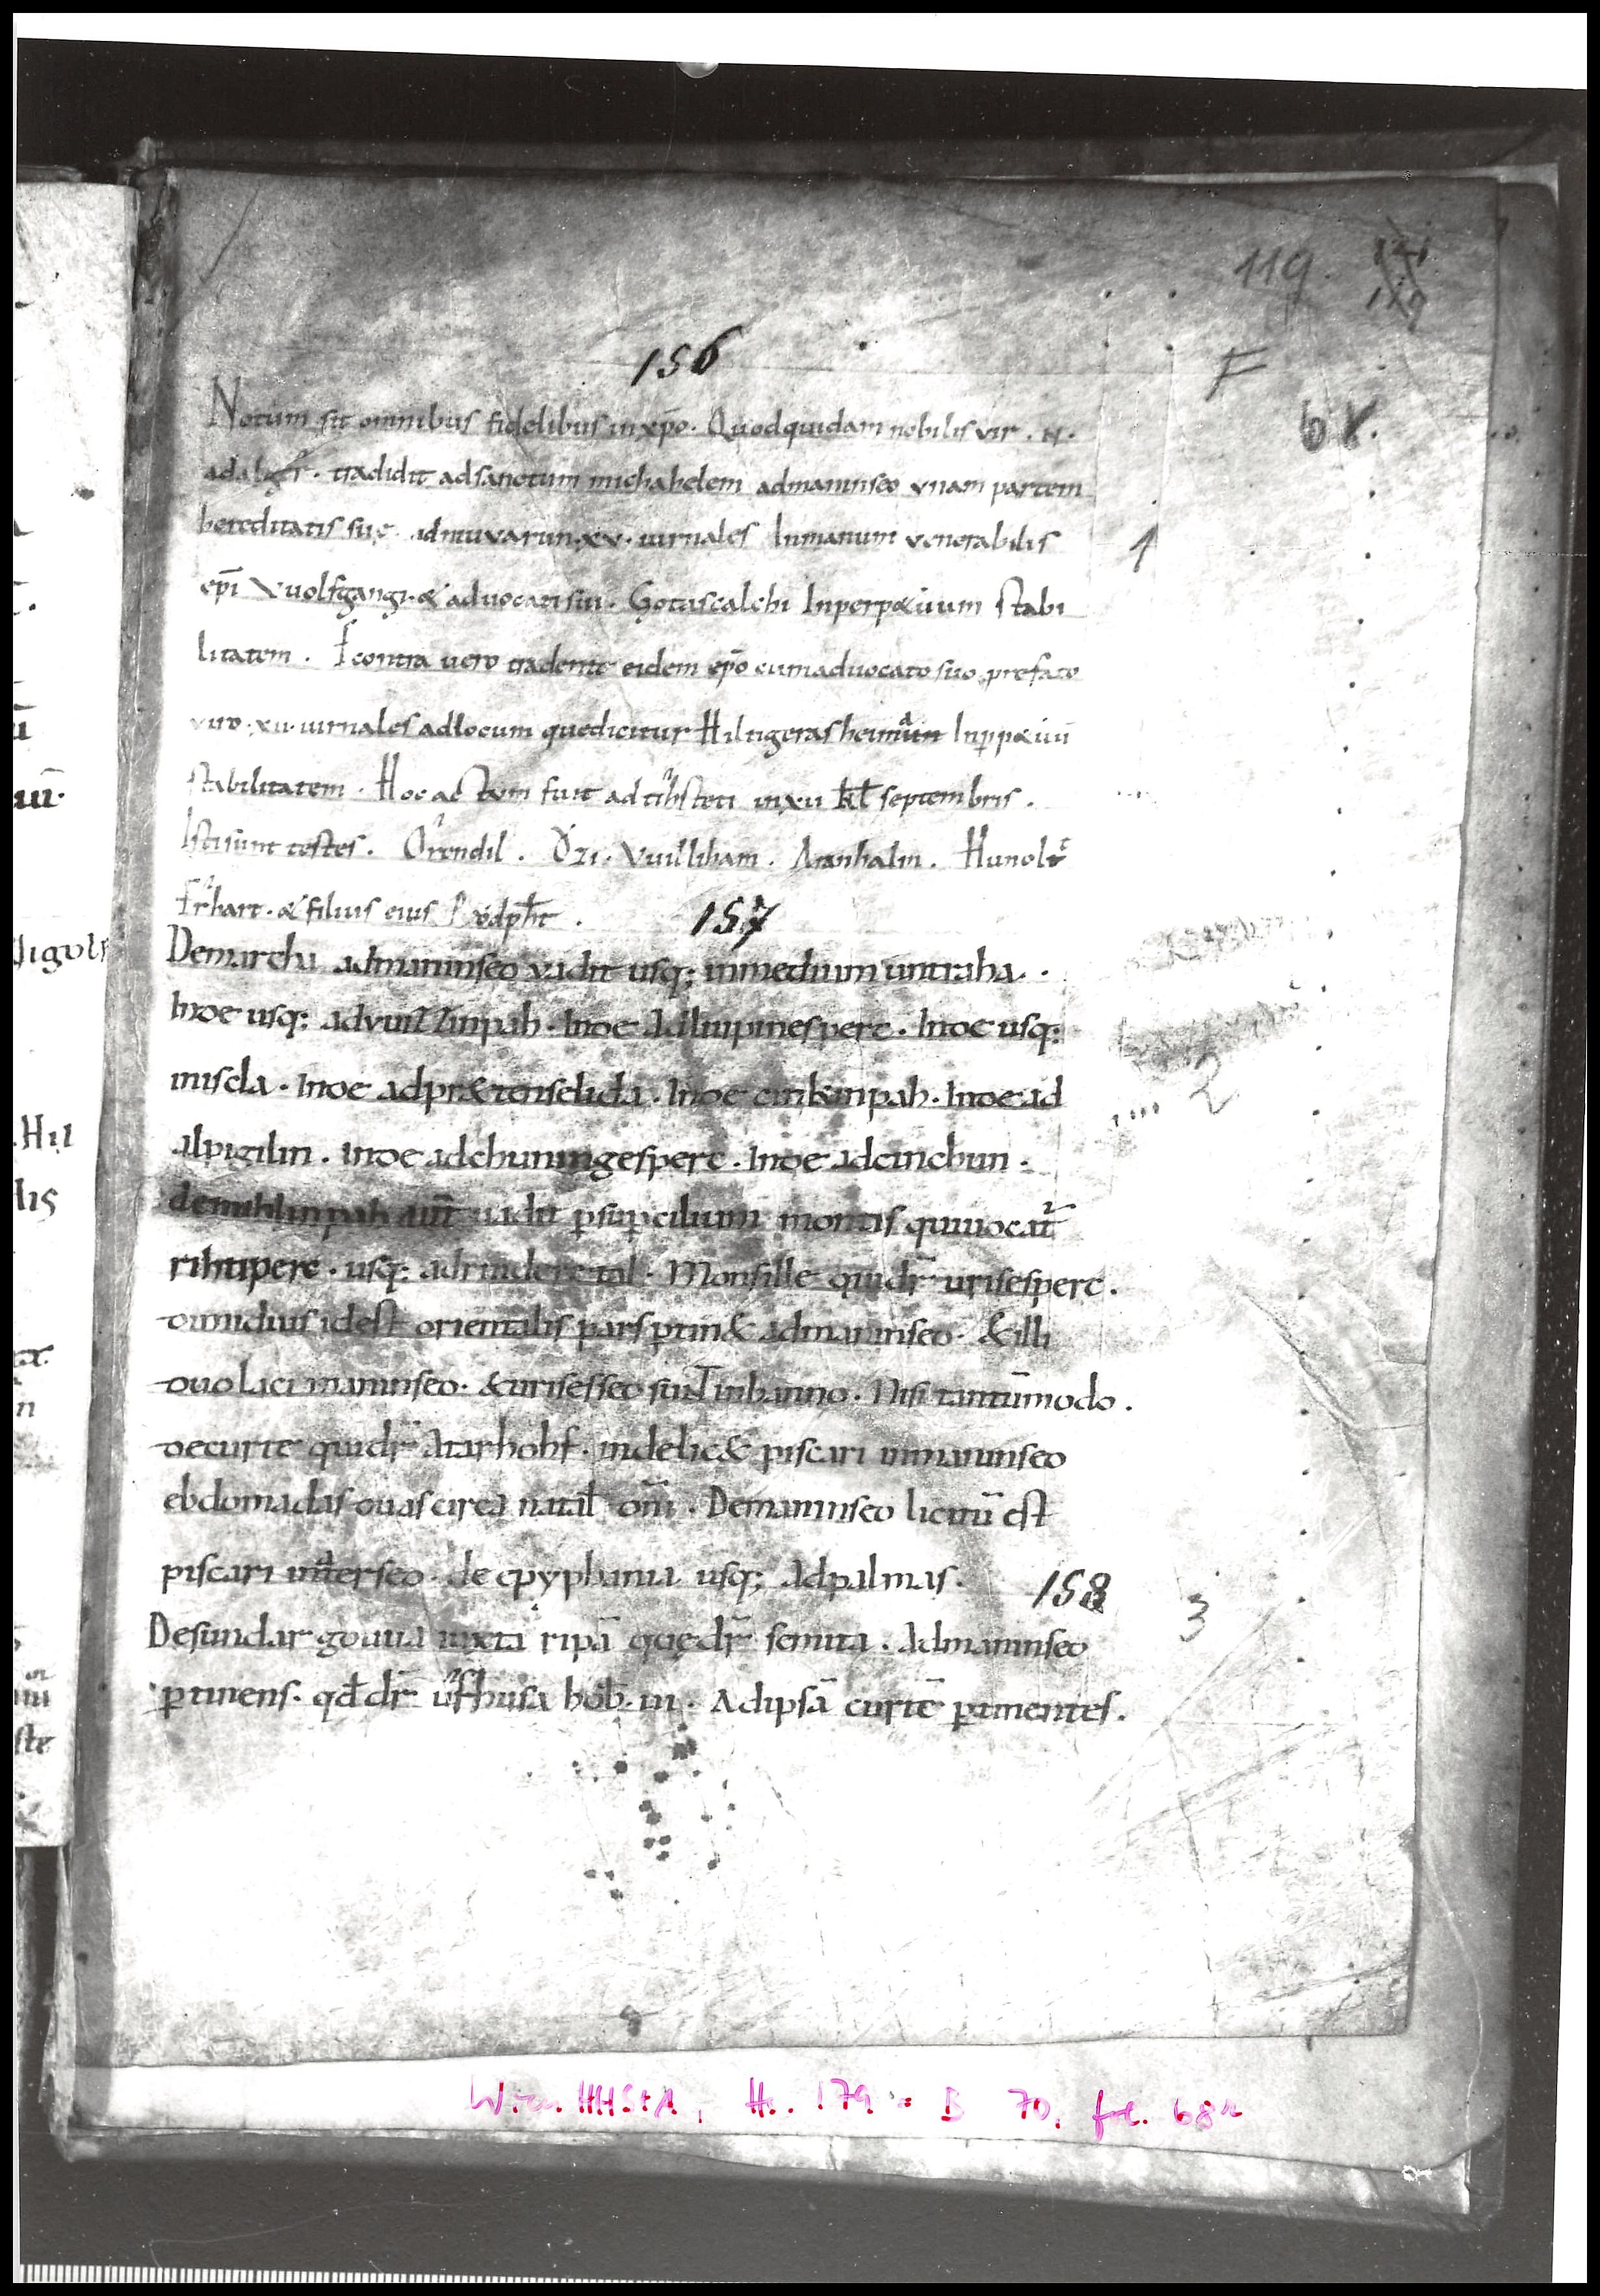 119.
156
F
68.
Notum sit omnibus fidelibus inxp̄o. Quodquidam nobilis vir . N.
adalg̃r. tradidit adsanctum michahelem admaninseo vnam partem
hereditatis suę. xv. iurnales Inmanum venerabilis
1
ep̄i Vuolfgangi. & aduocati sui. Gotascalchi Inperp&uum stabi
litatem. Econtra uero tradente eidem ep̄o cumaduocato suo prefato
viro. xii. iurnales adlocum quedicitur Hiltigeras heim Inp̱p&uū
stabilitatem. Hoc actum fuit in xii kł septembris.
Isti sunt testes. Orendil. Ózi. Vuilliham. Aranhalm. Hunolt
Erhart. & filius eius
157
Demarchu admaninseo vadit usq; inmedium untraha.
Inde usq; advuizzinpah. Inde Adliupinesperc. Inde usq;
iniscla. Inde adpr&tenselida. Inde einkinpah. Inde ad
2
alpigilin. Inde adchuningesperc. Inde adcinchun.
demihlinpah aut̄ uadit p̱sup̱cilium montis quiuocat̃
rihtiperc. usq; adrinderetal. Monsille quidr̄ urisesperc.
dimidius idest orientalis pars p̱tin& admaninseo. & illi
duo laci maninseo. & urisesseo suń inbanno. Nisi tantūmodo.
decurte quidr̄ Atarhohf. indelic& piscari inmaninseo
ebdomadas duas circa natał dn̄i. Demaninseo licitū est
piscari inaterseo. de epyphania usq; adpalmas.
158
3
Desundargouua iuxta ripā quędr̄ semita. Admaninseo
p̱tinens. qd̄dr̄ ufhusa hob. iii. Adipsā curtē p̱tinentes.
Wien HHStA, Hs. 179 = B 70, fol. 68r